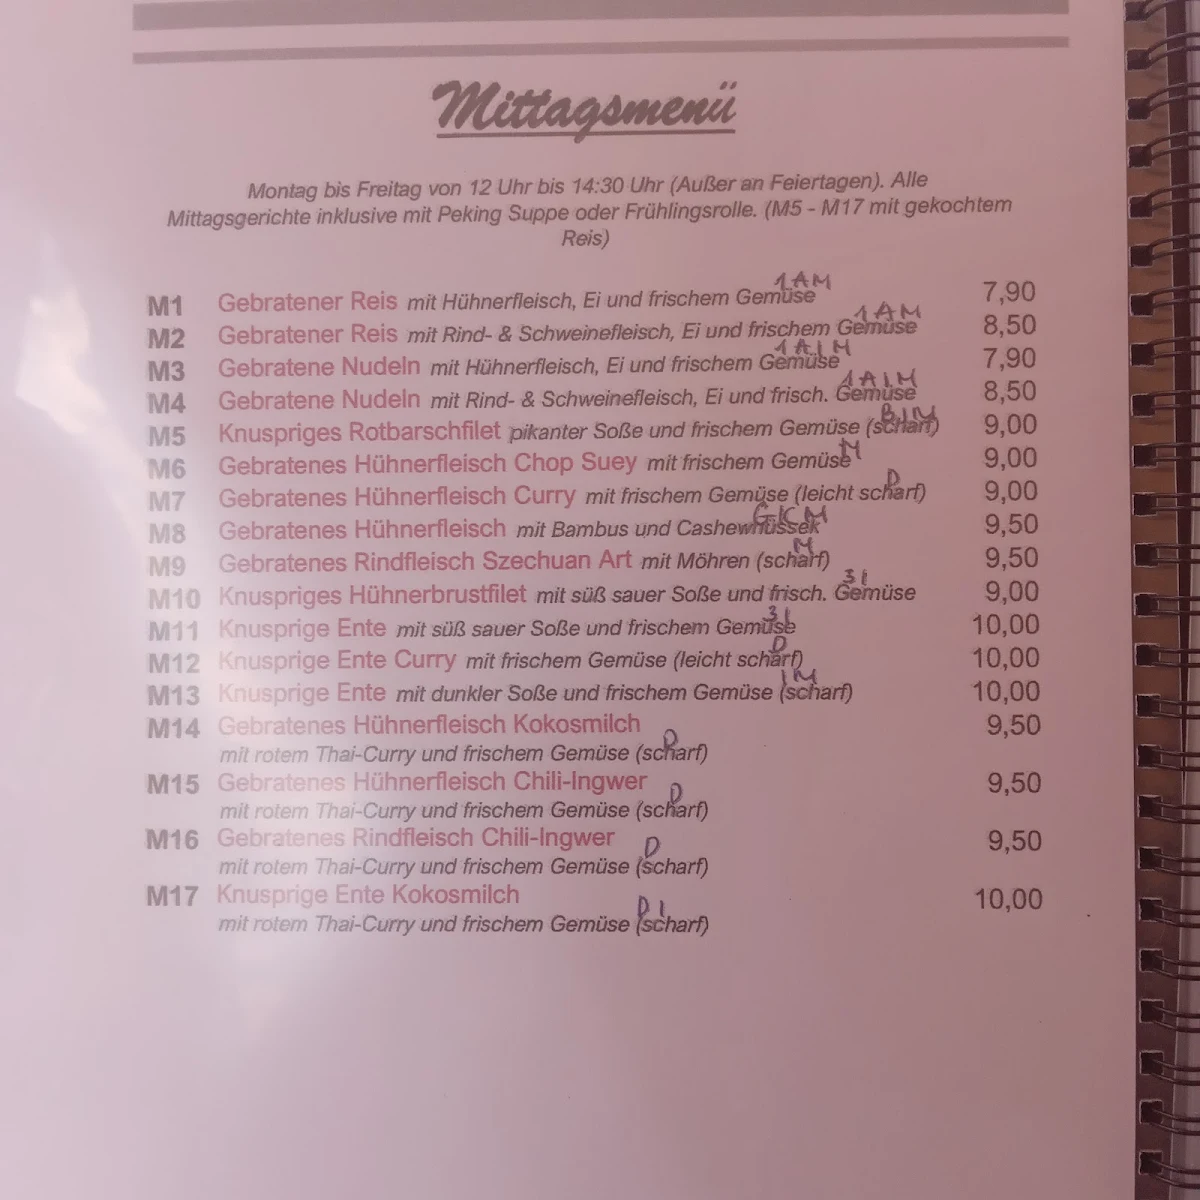 Mittagsmenü
Montag bis Freitag von 12 Uhr bis 14:30 Uhr (Außer an Feiertagen). Alle
Mittagsgerichte inklusive mit Peking Suppe oder Frühlingsrolle. (M5 - M17 mit gekochtem
Reis)
1 A M
M1 Gebratener Reis mit Hühnerfleisch, Ei und frischem Gemüse 7,90
1 A M
M2 Gebratener Reis mit Rind- & Schweinefleisch, Ei und frischem Gemüse 8,50
1 A I M
M3 Gebratene Nudeln mit Hühnerfleisch, Ei und frischem Gemüse 7,90
1 A I M
M4 Gebratene Nudeln mit Rind- & Schweinefleisch, Ei und frisch. Gemüse 8,50
B I M
M5 Knuspriges Rotbarschfilet pikanter Soße und frischem Gemüse (scharf) 9,00
M
M6 Gebratenes Hühnerfleisch Chop Suey mit frischem Gemüse 9,00
D
M7 Gebratenes Hühnerfleisch Curry mit frischem Gemüse (leicht scharf) 9,00
M8 Gebratenes Hühnerfleisch mit Bambus und 9,50
M
M9 Gebratenes Rindfleisch Szechuan Art mit Möhren (scharf) 9,50
3 I
M10 Knuspriges Hühnerbrustfilet mit süß sauer Soße und frisch. Gemüse 9,00
3 I
M11 Knusprige Ente mit süß sauer Soße und frischem Gemüse 10,00
D
M12 Knusprige Ente Curry mit frischem Gemüse (leicht scharf) 10,00
I M
M13 Knusprige Ente mit dunkler Soße und frischem Gemüse (scharf) 10,00
M14 Gebratenes Hühnerfleisch Kokosmilch 9,50
D
mit rotem Thai-Curry und frischem Gemüse (scharf)
M15 Gebratenes Hühnerfleisch Chili-Ingwer 9,50
D
mit rotem Thai-Curry und frischem Gemüse (scharf)
M16 Gebratenes Rindfleisch Chili-Ingwer 9,50
D
mit rotem Thai-Curry und frischem Gemüse (scharf)
M17 Knusprige Ente Kokosmilch 10,00
D I
mit rotem Thai-Curry und frischem Gemüse (scharf)